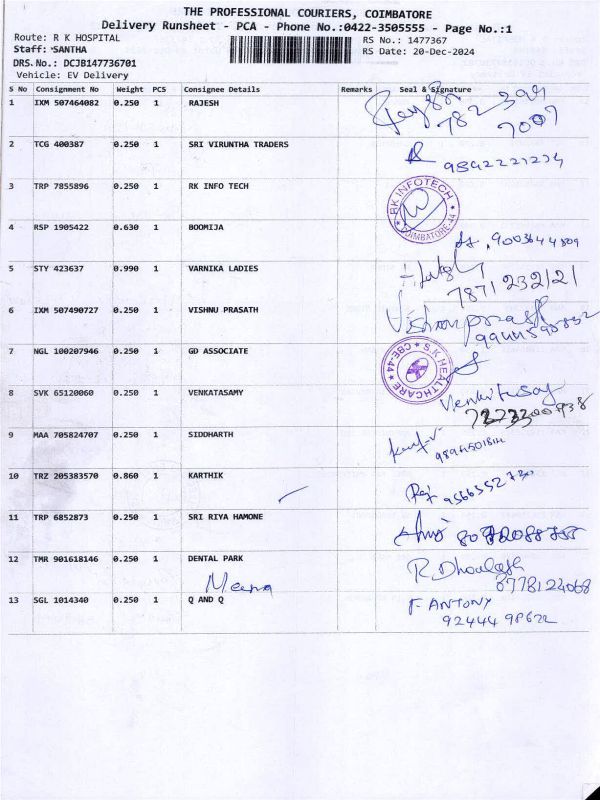 THE PROFESSIONAL COURIERS, COIMBATORE
Delivery Runsheet - PCA - Phone No.:0422-3505555 - Page No.:1
Route: R K HOSPITAL RS No.: 1477367
Staff: SANTHA RS Date: 20-Dec-2024
DRS.No.: DCJB147736701
Vehicle: EV Delivery
S No Consignment No Weight PCS Consignee Details Remarks Seal & Signature
1 IXM 507464082 0.250 1 RAJESH
7007
2 TCG 400387 0.250 1 SRI VIRUNTHA TRADERS
3 TRP 7855896 0.250 1 RK INFO TECH
RK INFOTECH
COIMBATORE-44
4 RSP 1905422 0.630 1 BOOMIJA
9003644809
5 STY 423637 0.990 1 VARNIKA LADIES
7871232121
6 IXM 507490727 0.250 1 VISHNU PRASATH
7 NGL 100207946 0.250 1 GD ASSOCIATE
S.K HEALTHCARE
CBE-44
8 SVK 65120060 0.250 1 VENKATASAMY
9 MAA 705824707 0.250 1 SIDDHARTH
10 TRZ 205383570 0.860 1 KARTHIK
11 TRP 6852873 0.250 1 SRI RIYA HAMONE
12 TMR 901618146 0.250 1 DENTAL PARK
Meena
8778124068
13 SGL 1014340 0.250 1 Q AND Q
F ANTONY
92444 98622